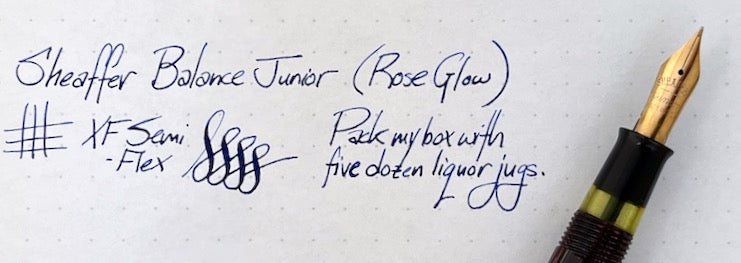 Sheaffer Balance Junior (Rose Glow)
XF Semi
-Flex
Pack my box with
five dozen liquor jugs.